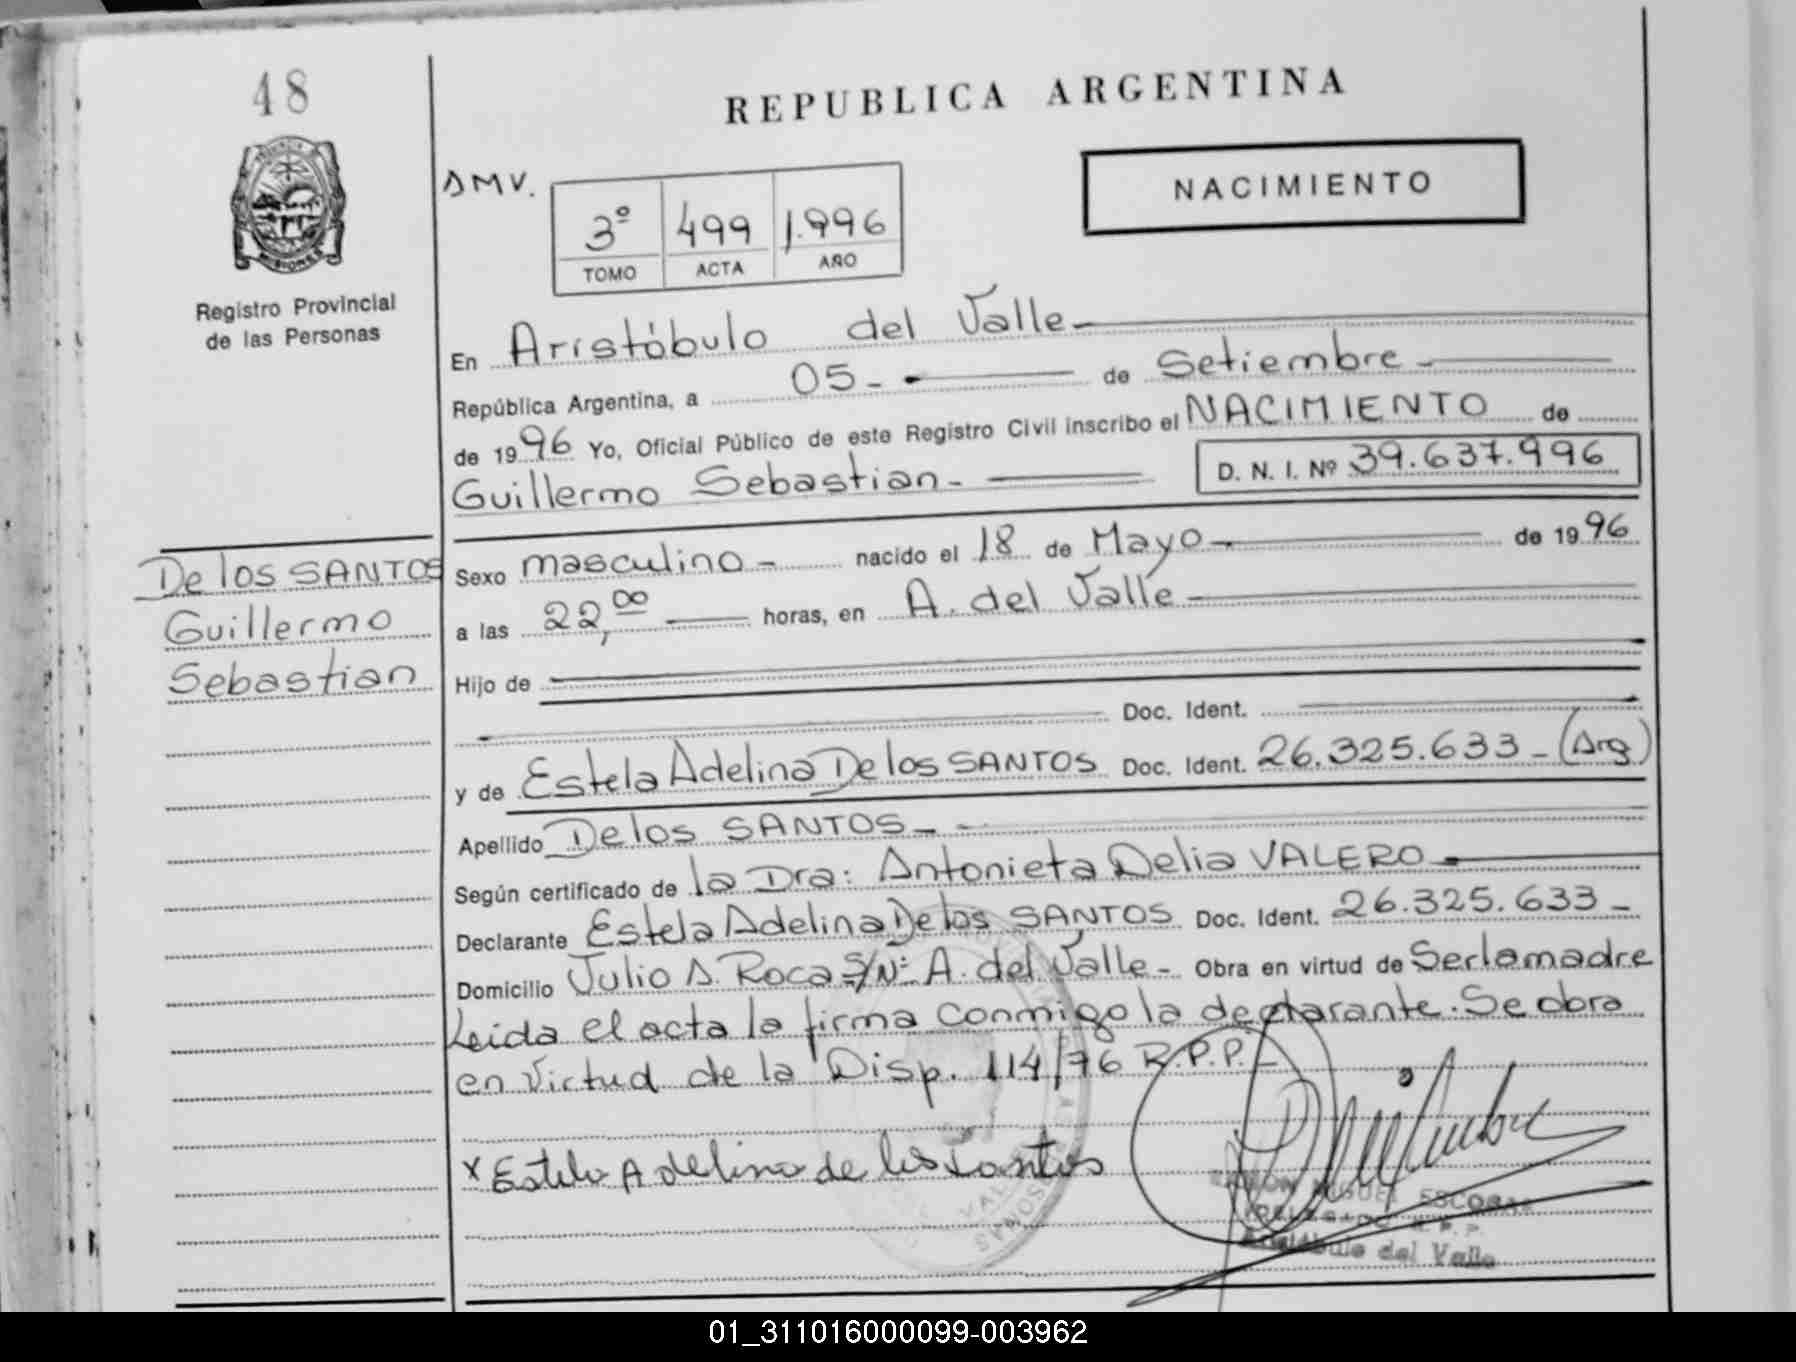 48
REPUBLICA ARGENTINA
PROVINCIA
MISIONES
Registro Provincial
de las Personas
DMV.
3º 499 1.996
TOMO ACTA AÑO
NACIMIENTO
En Aristóbulo del Valle-
República Argentina, a 05- de Setiembre-
de 1996 Yo, Oficial Público de este Registro Civil inscribo el NACIMIENTO de
Guillermo Sebastian- D. N. I. Nº 39.637.996
De los SANTOS
Guillermo
Sebastian
Sexo masculino- nacido el 18 de Mayo- de 1996
a las 22,00 horas, en A. del Valle-
Hijo de
Doc. Ident.
y de Estela Adelina De los SANTOS Doc. Ident. 26.325.633-(Arg)
Apellido De los SANTOS-
Según certificado de la Dra: Antonieta Delia VALERO-
Declarante Estela Adelina De los SANTOS Doc. Ident. 26.325.633-
Domicilio Julio A. Roca S/Nº A. del Valle- Obra en virtud de Serlamadre
Leida el acta la firma conmigo la declarante. Se obra
en virtud de la Disp. 114/76 R.P.P.-
x Estela Adelina de los Santos
RAMON MIGUEL ESCOBAR
DELEGADO R.P.P.
Aristóbulo del Valle
01_311016000099-003962